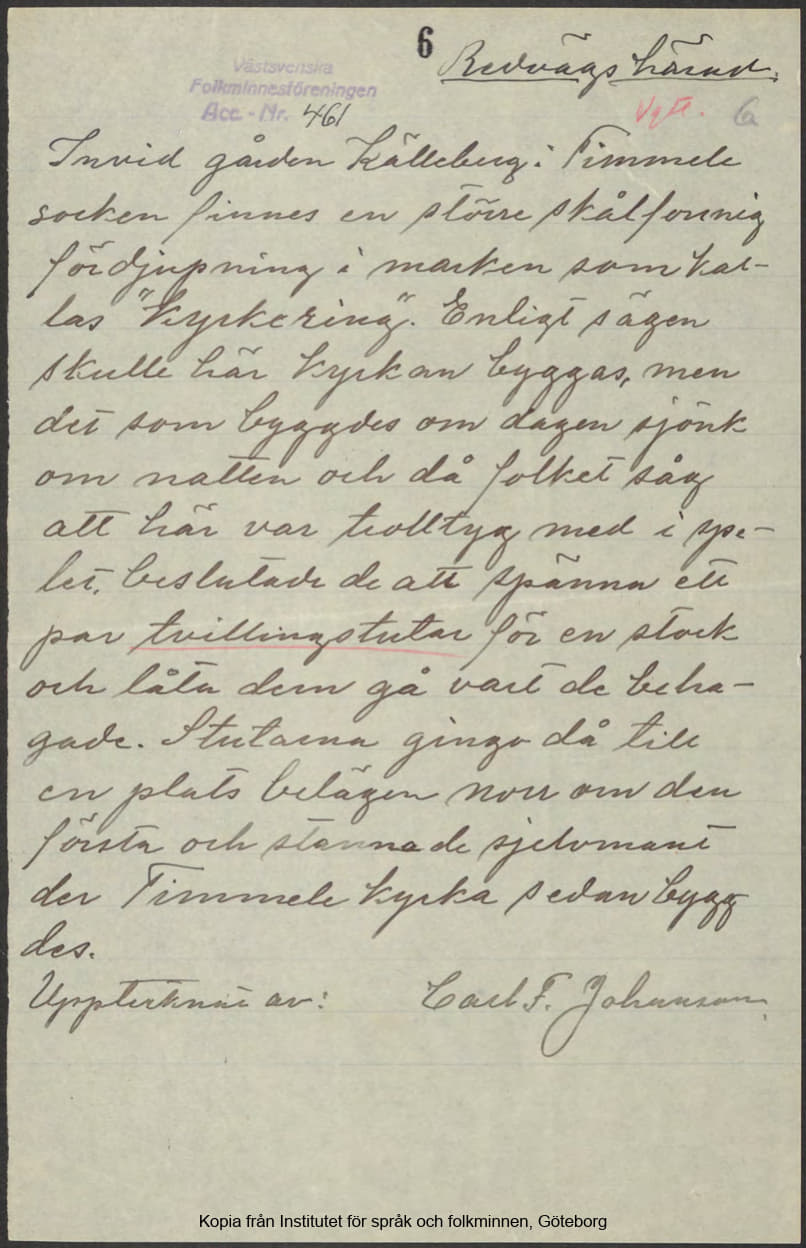 6
Redvägs härad.
Västsvenska
Folkminnesföreningen
Acc.-Nr. 461
Vgtl. 6a
Invid gården Källeberg i Timmele
socken finnes en större skålformig
fördjupning i marken som kal-
las "Kyrkering". Enligt sägen
skulle här kyrkan byggas, men
det som byggdes om dagen sjönk
om natten och då folket såg
att här var trolltyg med i spe-
let, beslutade de att spänna ett
par tvillingstutar för en stock
och låta dem gå vart de beha-
gade. Stutarna gingo då till
en plats belägen norr om den
första och stannade sjelvmant
der Timmele kyrka sedan bygg
des.
Upptecknat av: Carl F. Johansson.
Kopia från Institutet för språk och folkminnen, Göteborg